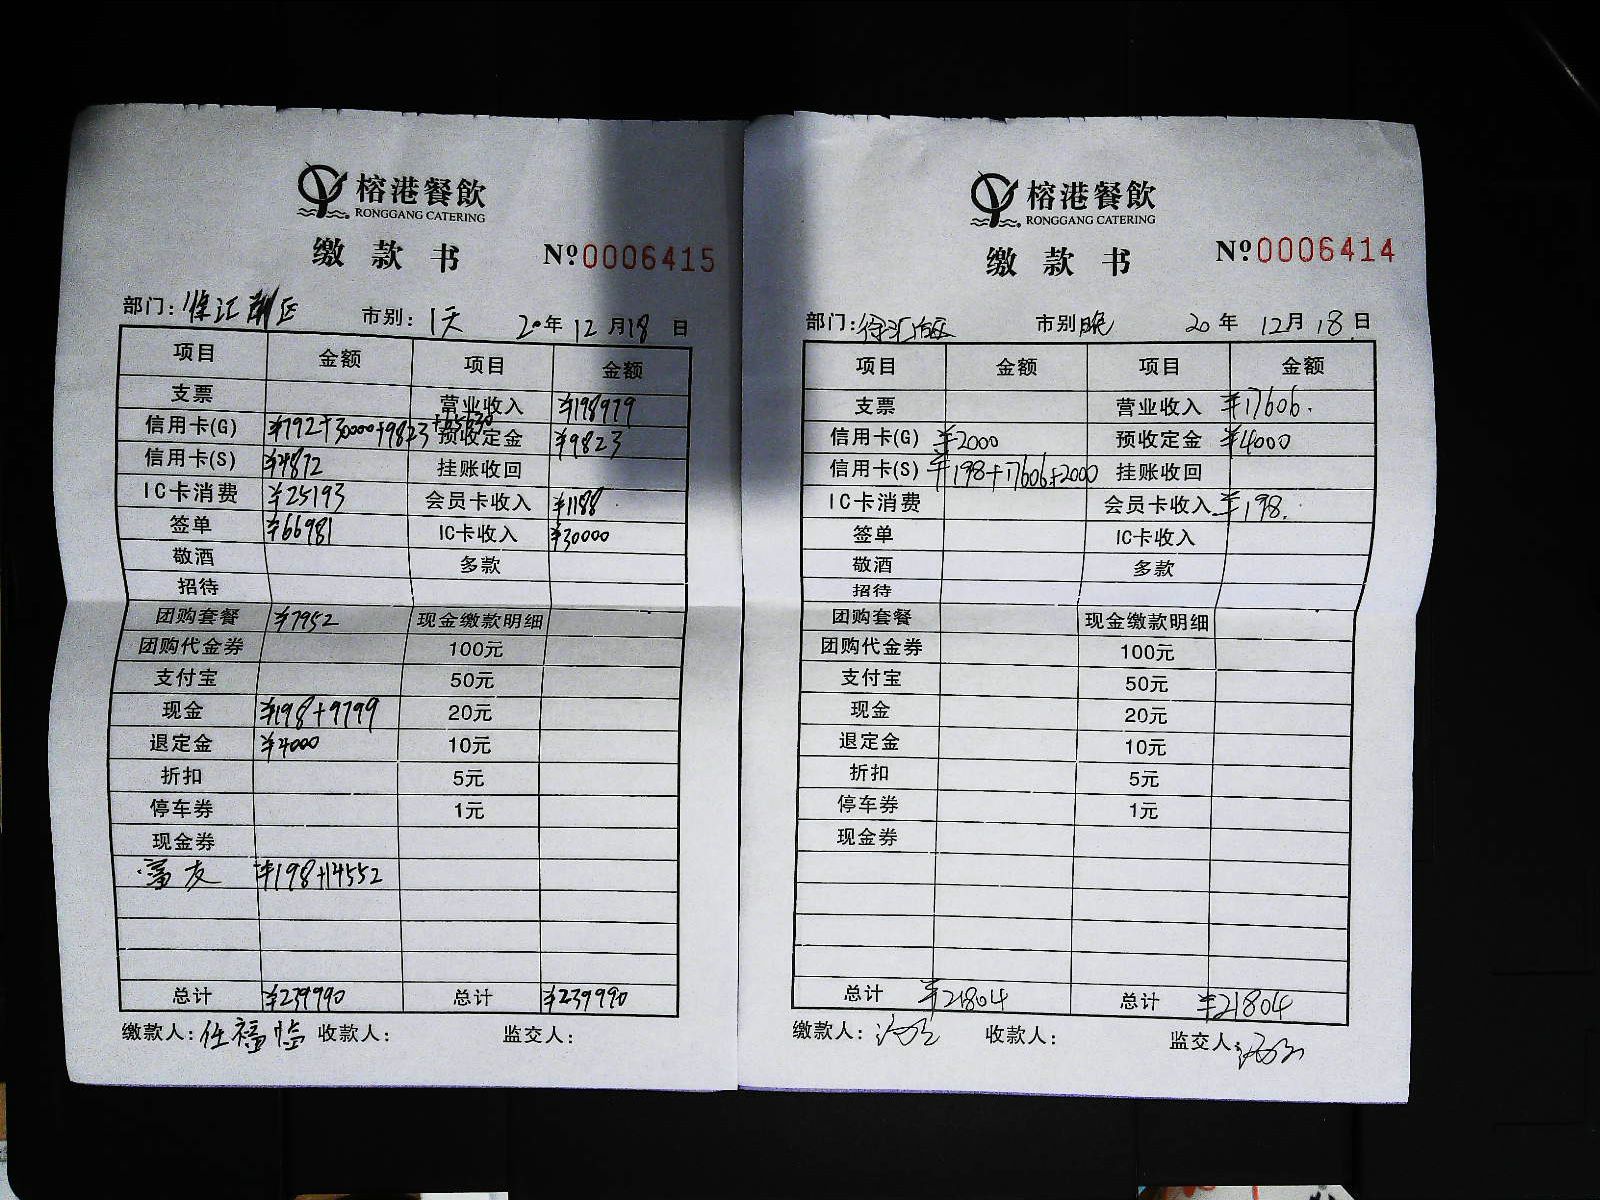 榕港餐飲
RONGGANG CATERING
缴款书 № 0006415
部门: 徐汇 区 市别: 1天 20年 12月 18日
项目 金额 项目 金额
支票 营业收入 ¥198979
信用卡(G) ¥792+30000+9823+65630 预收定金 ¥9823
信用卡(S) ¥4872 挂账收回
IC卡消费 ¥25193 会员卡收入 ¥1188
签单 ¥66981 IC卡收入 ¥30000
敬酒 多款
招待
团购套餐 ¥7952 现金缴款明细
团购代金券 100元
支付宝 50元
现金 ¥198+9799 20元
退定金 ¥4000 10元
折扣 5元
停车券 1元
现金券
富友 ¥198+14552
总计 ¥239990 总计 ¥239990
缴款人: 任福 收款人: 监交人:
榕港餐飲
RONGGANG CATERING
缴款书 № 0006414
部门: 徐汇 市别 20年 12月 18日
项目 金额 项目 金额
支票 营业收入 ¥17606.
信用卡(G) ¥2000 预收定金 ¥4000
信用卡(S) ¥198+17606+2000 挂账收回
IC卡消费 会员卡收入 ¥198.
签单 IC卡收入
敬酒 多款
招待
团购套餐 现金缴款明细
团购代金券 100元
支付宝 50元
现金 20元
退定金 10元
折扣 5元
停车券 1元
现金券
总计 ¥21804 总计 ¥21804
缴款人: 收款人: 监交人: